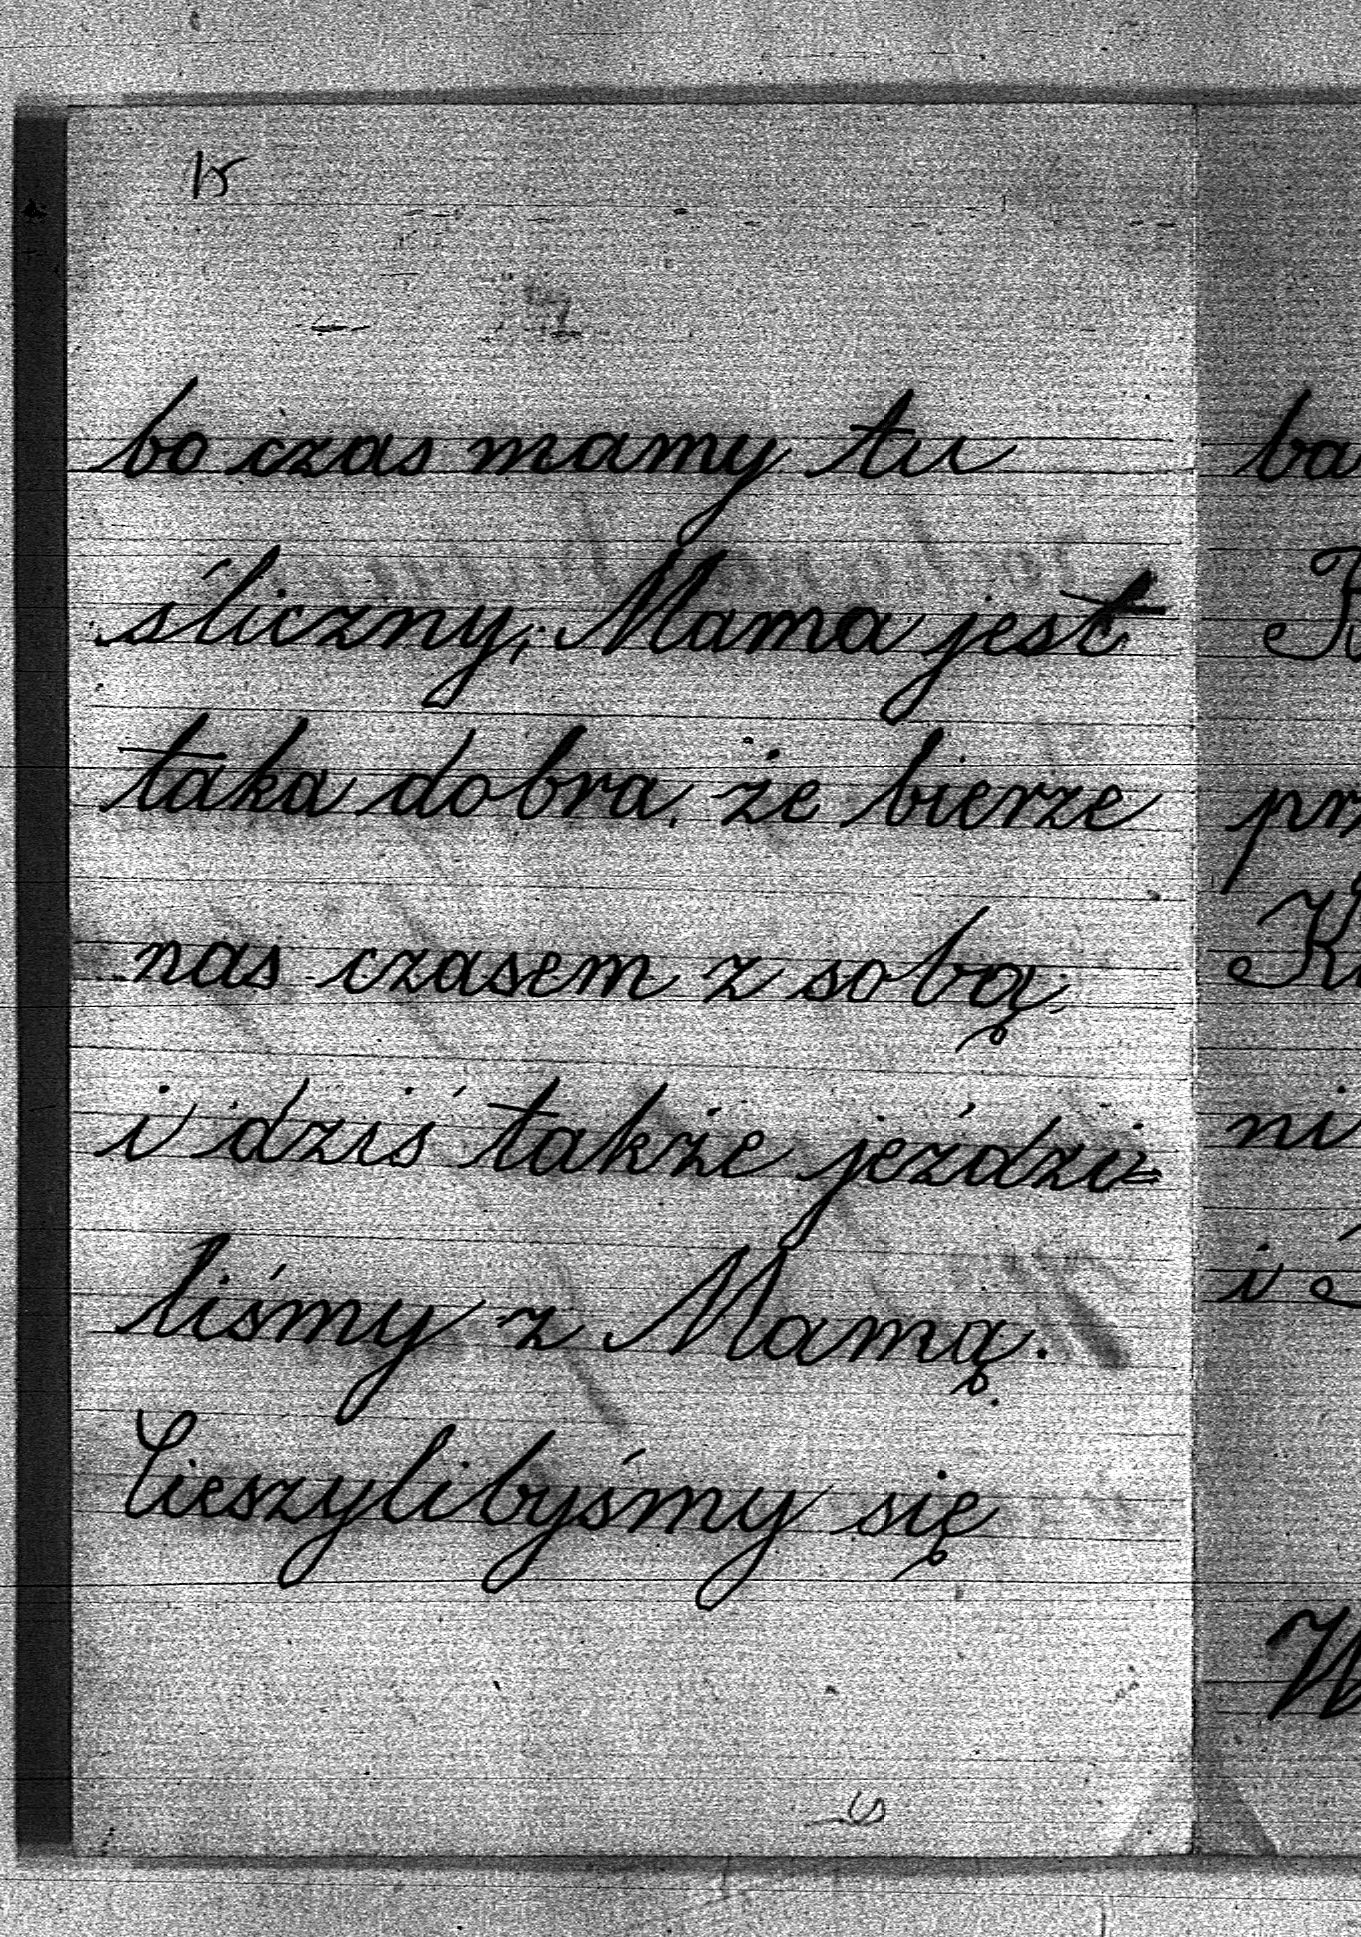 15
bo czas mamy tu
śliczny, Mama jest
taka dobra, że bierze
nas czasem z sobą,
i dziś także jeździ=
liśmy z Mamą.
Cieszylibyśmy się
ba
pr
ni
i
W